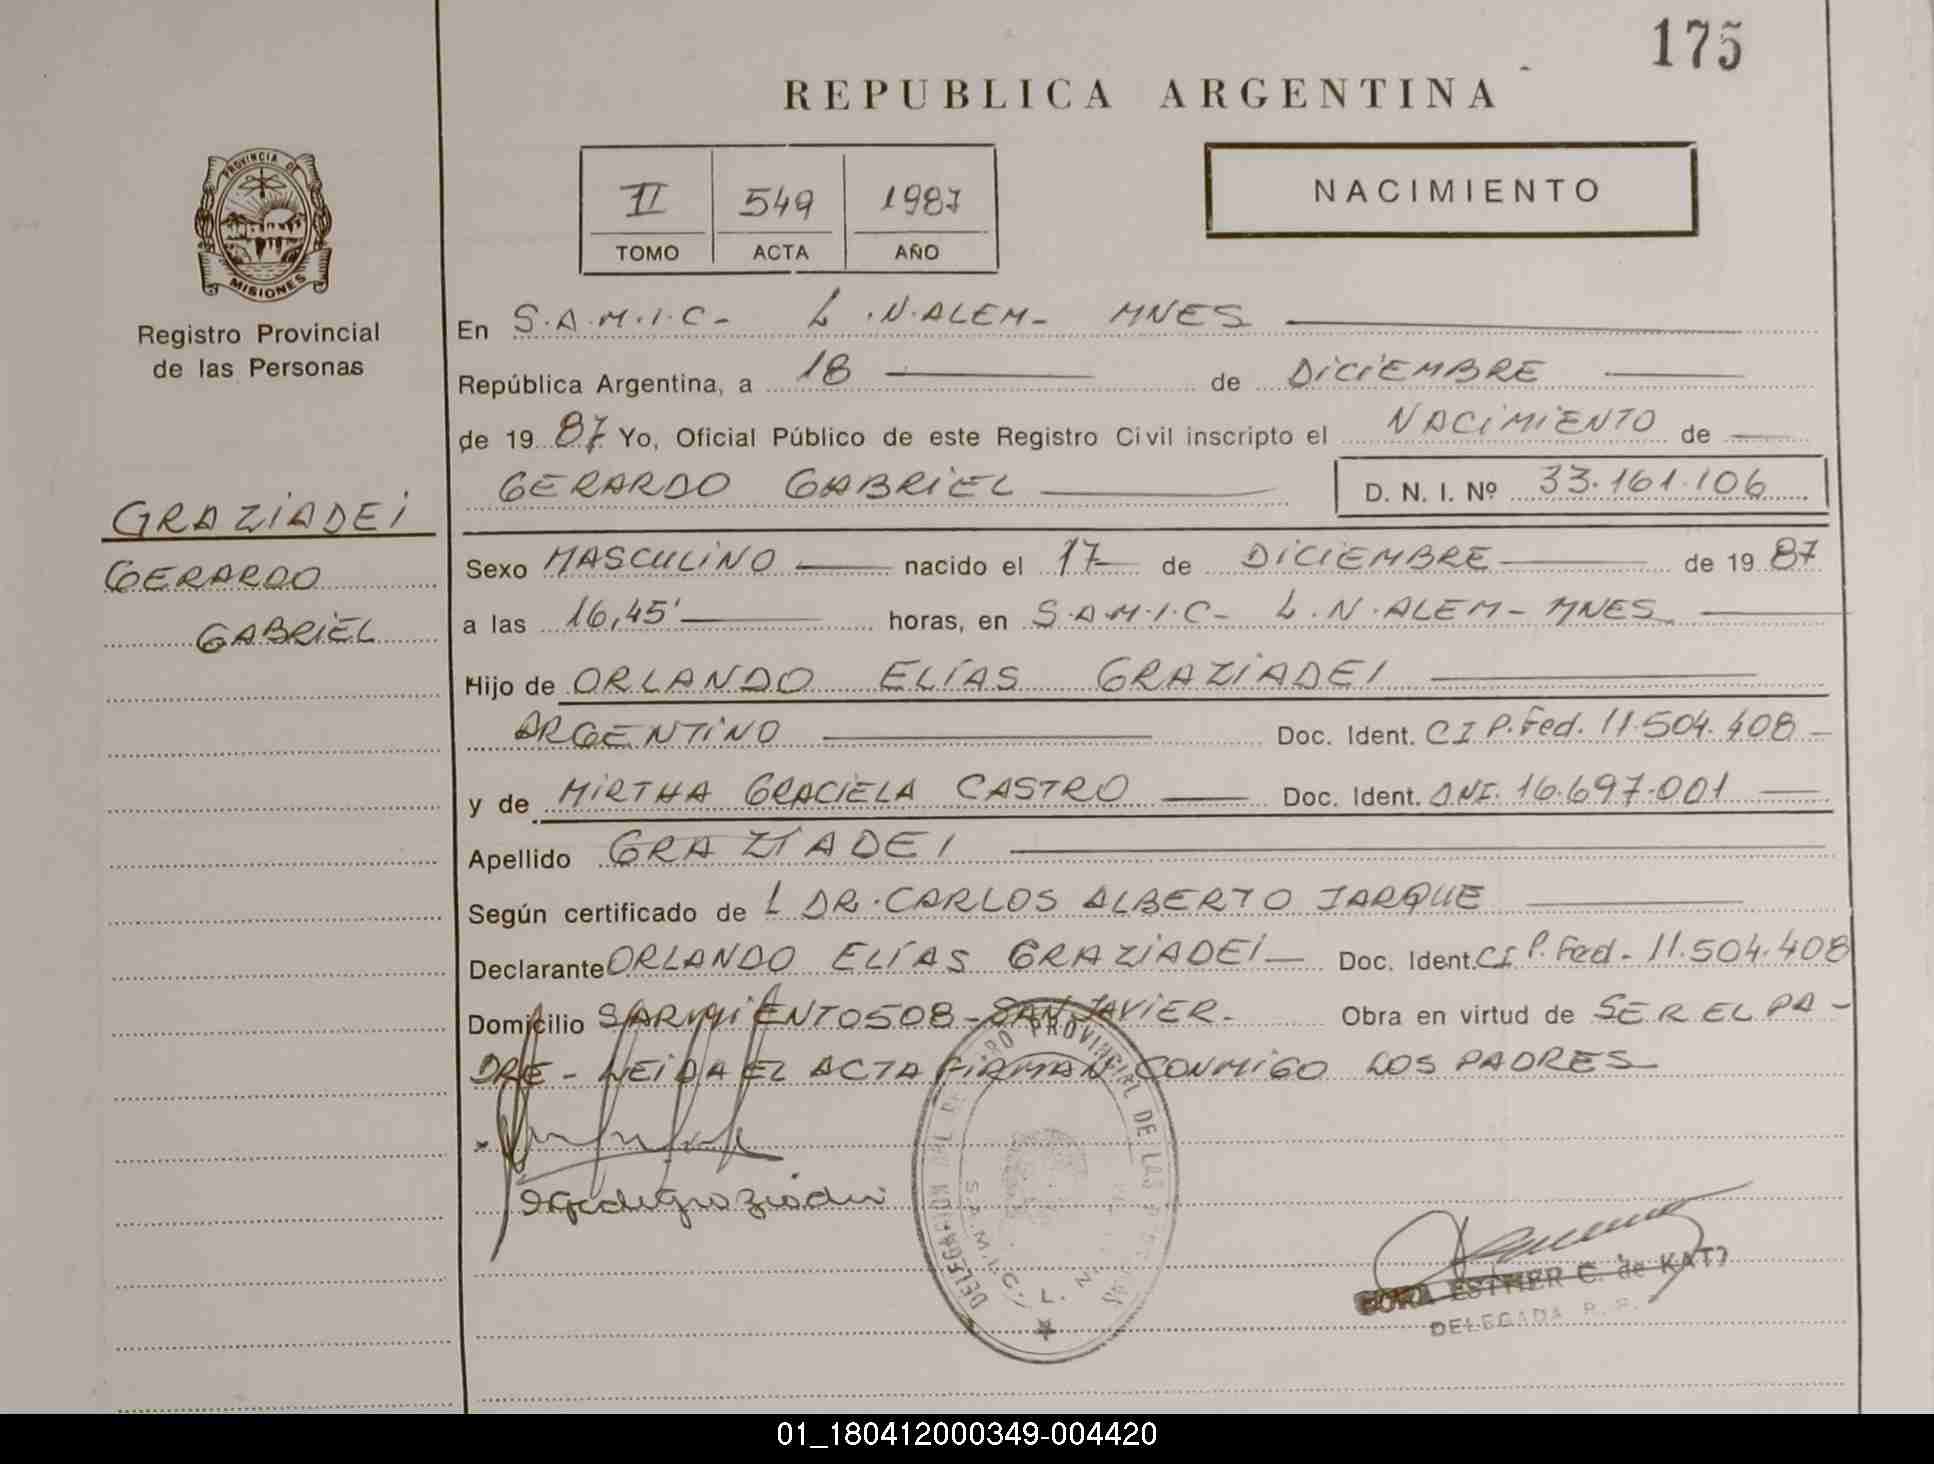 175
REPUBLICA ARGENTINA
PROVINCIA DE
MISIONES
Registro Provincial
de las Personas
II 549 1987
TOMO ACTA AÑO
NACIMIENTO
En S.A.M.I.C- L.N.ALEM- MNES
República Argentina, a 18 de DICIEMBRE
de 1987 Yo, Oficial Público de este Registro Civil inscripto el NACIMIENTO de
GERARDO GABRIEL D. N. I. Nº 33.161.106
GRAZIADEI
GERARDO
GABRIEL
Sexo MASCULINO nacido el 17 de DICIEMBRE de 1987
a las 16,45' horas, en S.A.M.I.C- L.N.ALEM- MNES
Hijo de ORLANDO ELÍAS GRAZIADEI
ARGENTINO Doc. Ident. CI P.Fed. 11.504.408-
y de MIRTHA GRACIELA CASTRO Doc. Ident. DNI. 16.697.001
Apellido GRAZIADEI
Según certificado de L DR. CARLOS ALBERTO JARQUE
Declarante ORLANDO ELÍAS GRAZIADEI- Doc. Ident. CI P.Fed- 11.504.408
Domicilio SARMIENTO 508-SAN JAVIER- Obra en virtud de SER EL PA-
DRE- LEIDA EL ACTA FIRMAN CONMIGO LOS PADRES
PROVINCIAL DE LAS
S.A.M.I.C. L. N.
ESTHER C. de KATZ
DELEGADA R. P.
01_180412000349-004420